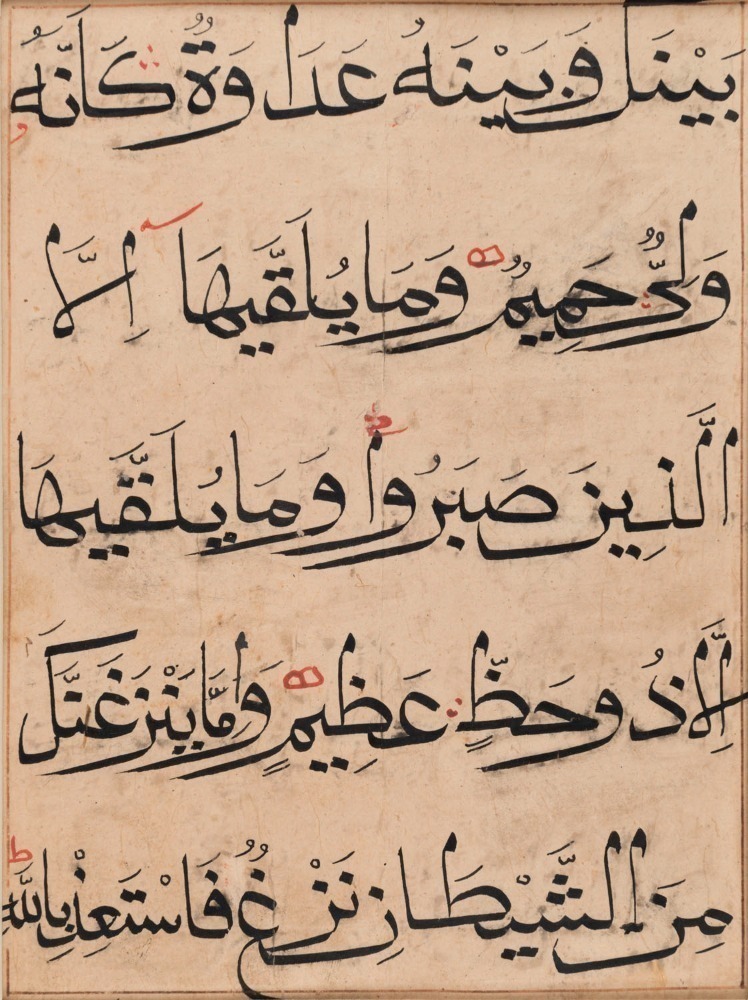 بَيْنَكَ وَبَيْنَهُ عَدَاوَةٌ كَأَنَّهُ
وَلِىٌّ حَمِيمٌ وَمَا يُلَقَّيهَا اِلَّا
الَّذِينَ صَبَرُوا وَمَا يُلَقَّيهَا
اِلَّا ذُو حَظٍّ عَظِيمٍ وَاِمَّا يَنْزَغَنَّكَ
مِنَ الشَّيْطَانِ نَزْغٌ فَاسْتَعِذْ بِاللَّهِ